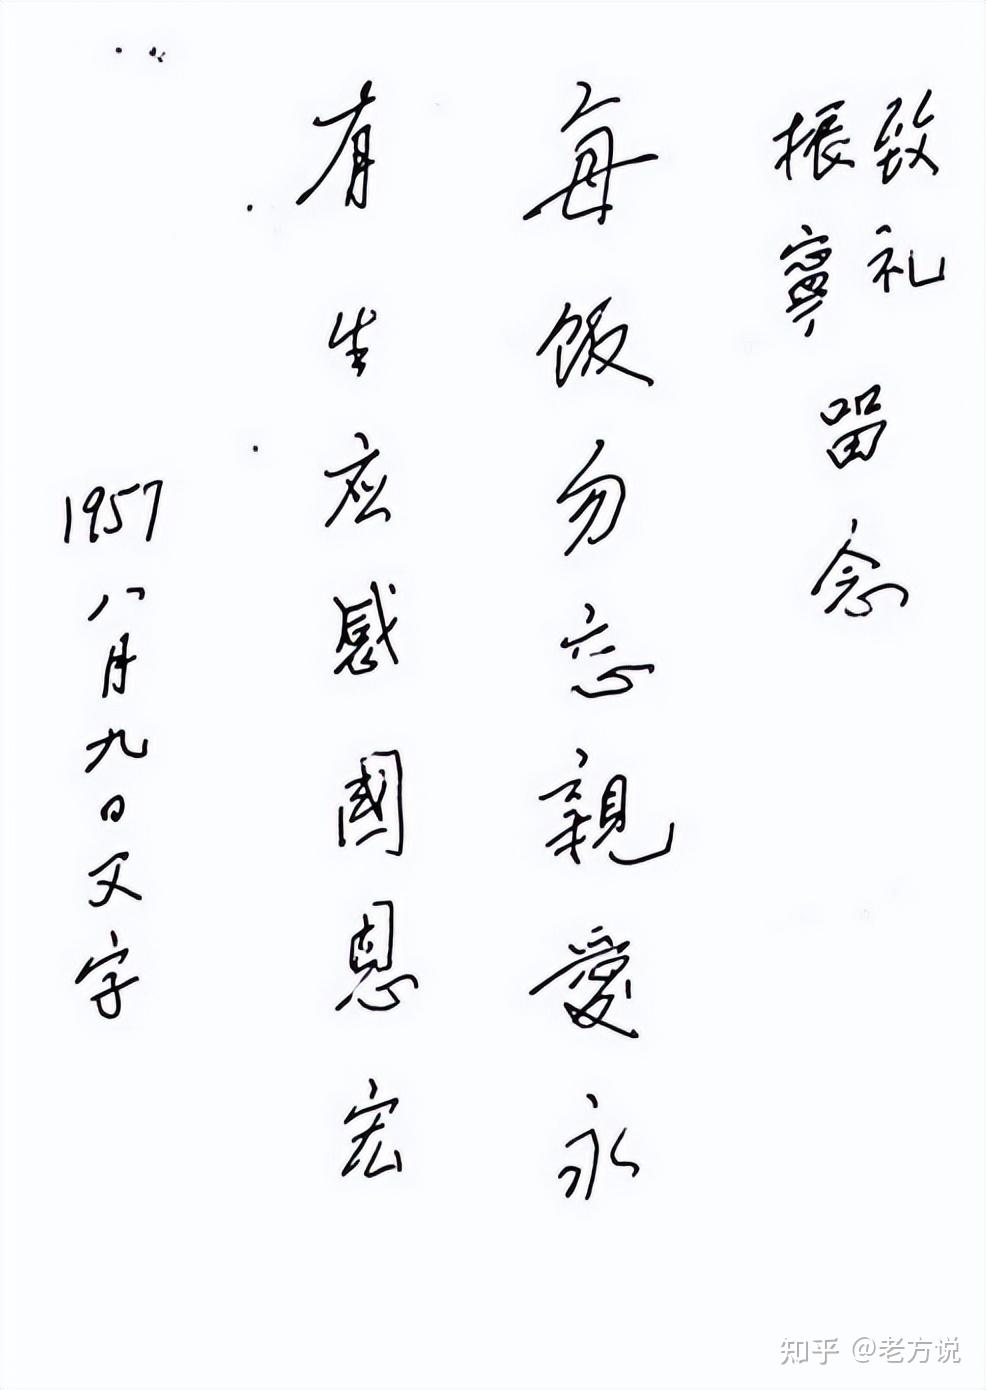 致礼
振寧 留念
每飯勿忘親愛永
有生应感國恩宏
1957
八月九日父字
知乎 @老方说